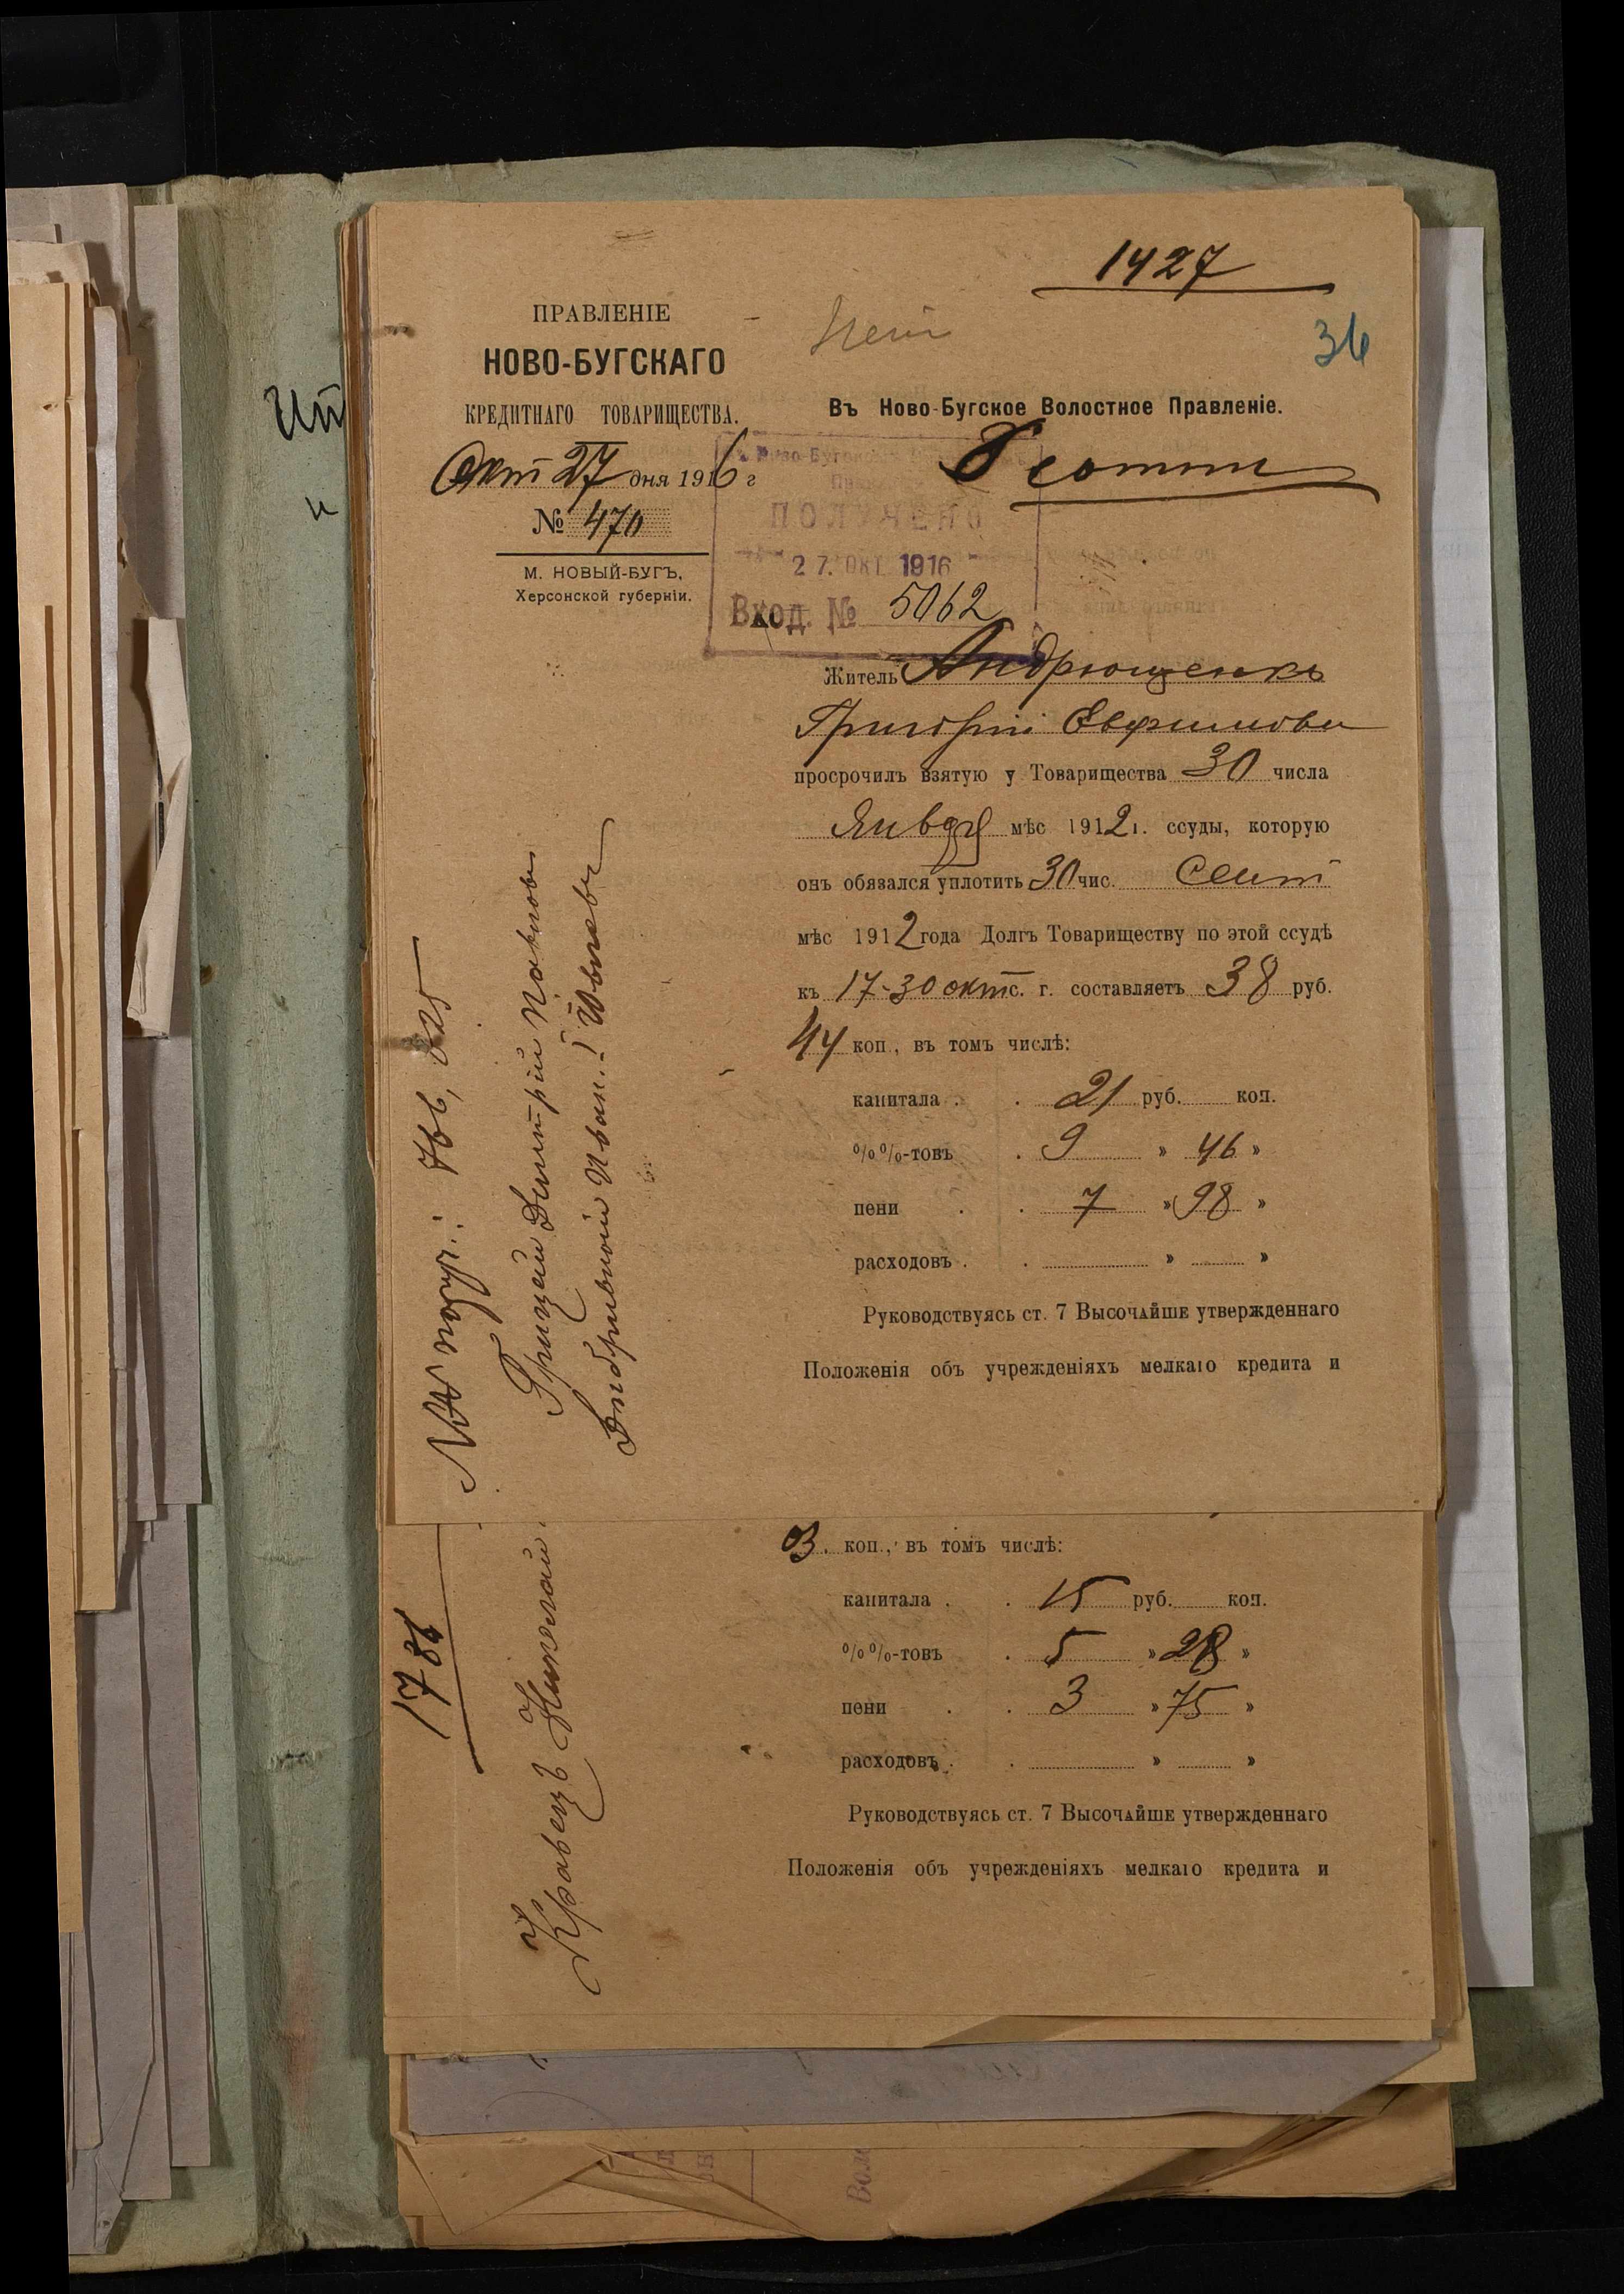 1427
36
ПРАВЛЕНІЕ
НОВО-БУГСКАГО
КРЕДИТНАГО ТОВАРИЩЕСТВА.
Окт 27 дня 1916 г
№ 470
М. НОВЫЙ-БУГЪ,
Херсонской губерніи.
Въ Ново-Бугское Волостное Правленіе.
ПОЛУЧЕНО
27. ОКТ 1916
Вход. № 5062
Житель Андрющенко
Григорій Евфимовъ
просрочилъ взятую у Товарищества 30 числа
Января мѣс 1912 г. ссуды, которую
онъ обязался уплотить 30 чис. Сент
мѣс 1912 года Долгъ Товариществу по этой ссудѣ
къ 17-30 окт с. г. составляетъ 38 руб.
44 коп., въ томъ числѣ:
капитала . . 21 руб. коп.
%%-товъ . 9 » 46 »
пени . . 7 » 98 »
расходовъ . . » »
Руководствуясь ст. 7 ВЫСОЧАЙШЕ утвержденнаго
Положенія объ учрежденіяхъ мелкаго кредита и
Грицай Дмитрій
Иван.
03. коп., въ томъ числѣ:
капитала . . 15 руб. коп.
%%-товъ . 5 » 28 »
пени . . 3 » 75 »
расходовъ . . » »
Руководствуясь ст. 7 ВЫСОЧАЙШЕ утвержденнаго
Положенія объ учрежденіяхъ мелкаго кредита и
1786
Кравецъ Николай